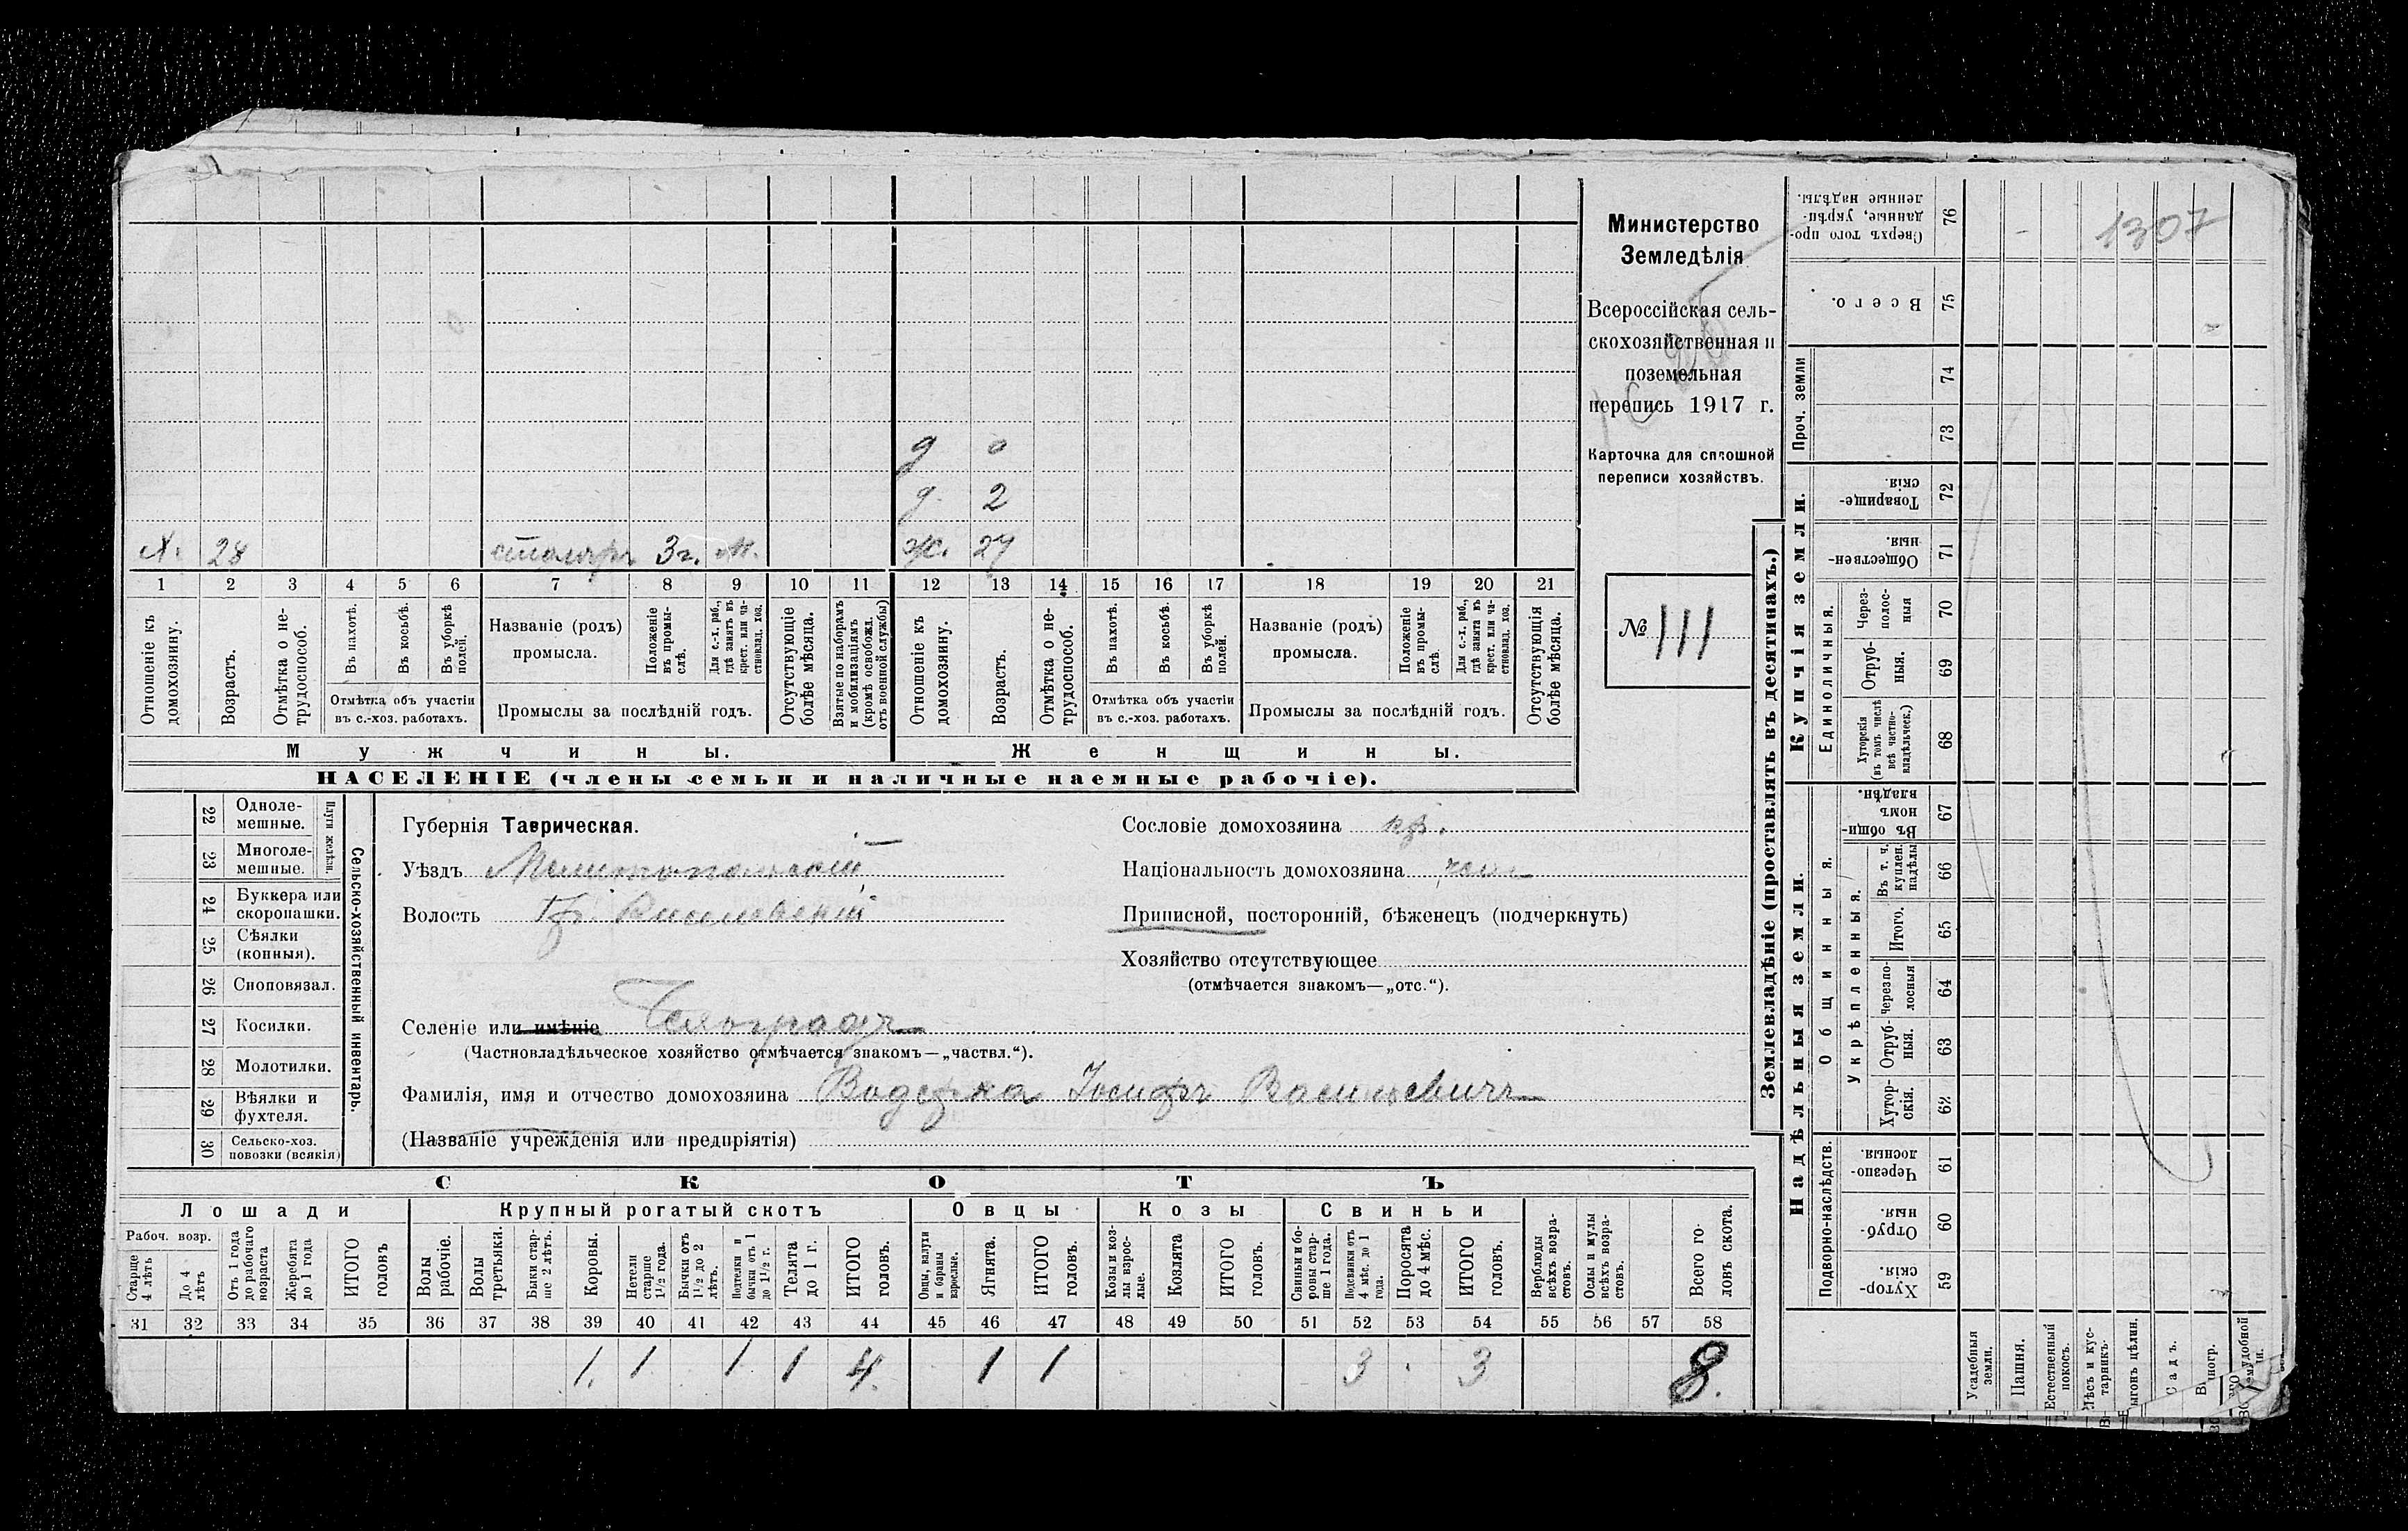 1307
Министерство
Земледѣлія
Всероссійская сель-
скохозяйственная и
поземельная
перепись 1917 г.
Карточка для сплошной
переписи хозяйствъ.
№ 111
д 0
д. 2
Х. 28 столяръ 3 г. Ж. 27
1 2 3 4 5 6 7 8 9 10 11 12 13 14 15 16 17 18 19 20 21
Отношеніе къ домохозяину.
Возрастъ.
Отмѣтка о не-трудоспособ.
Въ пахотѣ.
Въ косьбѣ.
Въ уборкѣ полей.
Отмѣтка объ участіи
въ с.-хоз. работахъ.
Названіе (родъ)
промысла.
Положеніе въ промы-слѣ.
Для с.-х. раб., гдѣ занятъ въ крест. или ча-стновлад. хоз.
Промыслы за послѣдній годъ.
Отсутствующіе болѣе мѣсяца.
Взятые по наборамъ и мобилизаціямъ (кромѣ освобожд. отъ военной службы)
Отношеніе къ домохозяину.
Возрастъ.
Отмѣтка о не-трудоспособ.
Въ пахотѣ.
Въ косьбѣ.
Въ уборкѣ полей.
Отмѣтка объ участіи
въ с.-хоз. работахъ.
Названіе (родъ)
промысла.
Положеніе въ промы-слѣ.
Для с.-х. раб., гдѣ занята въ крест. или ча-стновлад. хоз.
Промыслы за послѣдній годъ.
Отсутствующія болѣе мѣсяца.
Мужчины. Женщины.
НАСЕЛЕНІЕ (члены семьи и наличные наемные рабочіе).
22 Одноле-мешные.
23 Многоле-мешные.
24 Буккера или скоропашки.
25 Сѣялки (конныя).
26 Сноповязал.
27 Косилки.
28 Молотилки.
29 Вѣялки и фухтеля.
30 Сельско-хоз. повозки (всякія)
Сельско-хозяйственный инвентарь.
Губернія Таврическая.
Уѣздъ Мелитопольскій
Волость
Селеніе или имѣніе Чехоградъ
(Частновладѣльческое хозяйство отмѣчается знакомъ—„частвл.“).
Фамилія, имя и отчество домохозяина Водержка Іосифъ Васильевичъ
(Названіе учрежденія или предпріятія)
Сословіе домохозяина кр.
Національность домохозяина чехъ
Приписной, посторонній, бѣженецъ (подчеркнуть)
Хозяйство отсутствующее
(отмѣчается знакомъ—„отс.“).
СКОТЪ
Лошади Крупный рогатый скотъ Овцы Козы Свиньи
Рабоч. возр.
Старше 4 лѣтъ
До 4 лѣтъ
Отъ 1 года до рабочаго возраста
Жеребята до 1 года
ИТОГО головъ
Волы рабочіе.
Волы третьяки.
Быки стар-ше 2 лѣтъ.
Коровы.
Нетели старше 1½ года.
Бычки отъ 1½ до 2 лѣтъ.
Подтелки и бычки отъ 1 до 1½ г.
Телята до 1 г.
ИТОГО головъ.
Овцы, валухи и бараны взрослые.
Ягнята.
ИТОГО головъ.
Козы и коз-лы взрос-лые.
Козлята
ИТОГО головъ.
Свиньи и бо-ровы стар-ше 1 года.
Подсвинки отъ 4 мѣс. до 1 года.
Поросята до 4 мѣс.
ИТОГО головъ.
Верблюды всѣхъ возра-стовъ.
Ослы и мулы всѣхъ возра-стовъ.
Всего го-ловъ скота.
31 32 33 34 35 36 37 38 39 40 41 42 43 44 45 46 47 48 49 50 51 52 53 54 55 56 57 58
1. 1 1 1 4. 1 1 3 3 8.
Землевладѣніе (проставлять въ десятинахъ.)
Надѣльныя земли.
Купчія земли.
Проч. земли
Общинныя.
Укрѣпленныя.
Единоличныя.
Подворно-наслѣдств.
Сверхъ того про-данные, укрѣп-ленные надѣлы. 76
Всего. 75
74
73
Товарище-скія. 72
Обществен-ныя. 71
Через-полос-ныя 70
Отруб-ныя. 69
Хуторскія (въ томъ числѣ всѣ частно-владѣльческ.) 68
Въ общин-номъ владѣн. 67
Въ т. ч. куплен. надѣлы 66
Итого. 65
Черезпо-лосныя 64
Отруб-ныя. 63
Хутор-скія. 62
Черезпо-лосныя. 61
Отруб-ныя. 60
Хутор-скія. 59
Усадебныя земли.
Пашня.
Естественный покосъ.
Лѣсъ и кус-тарникъ.
Садъ.